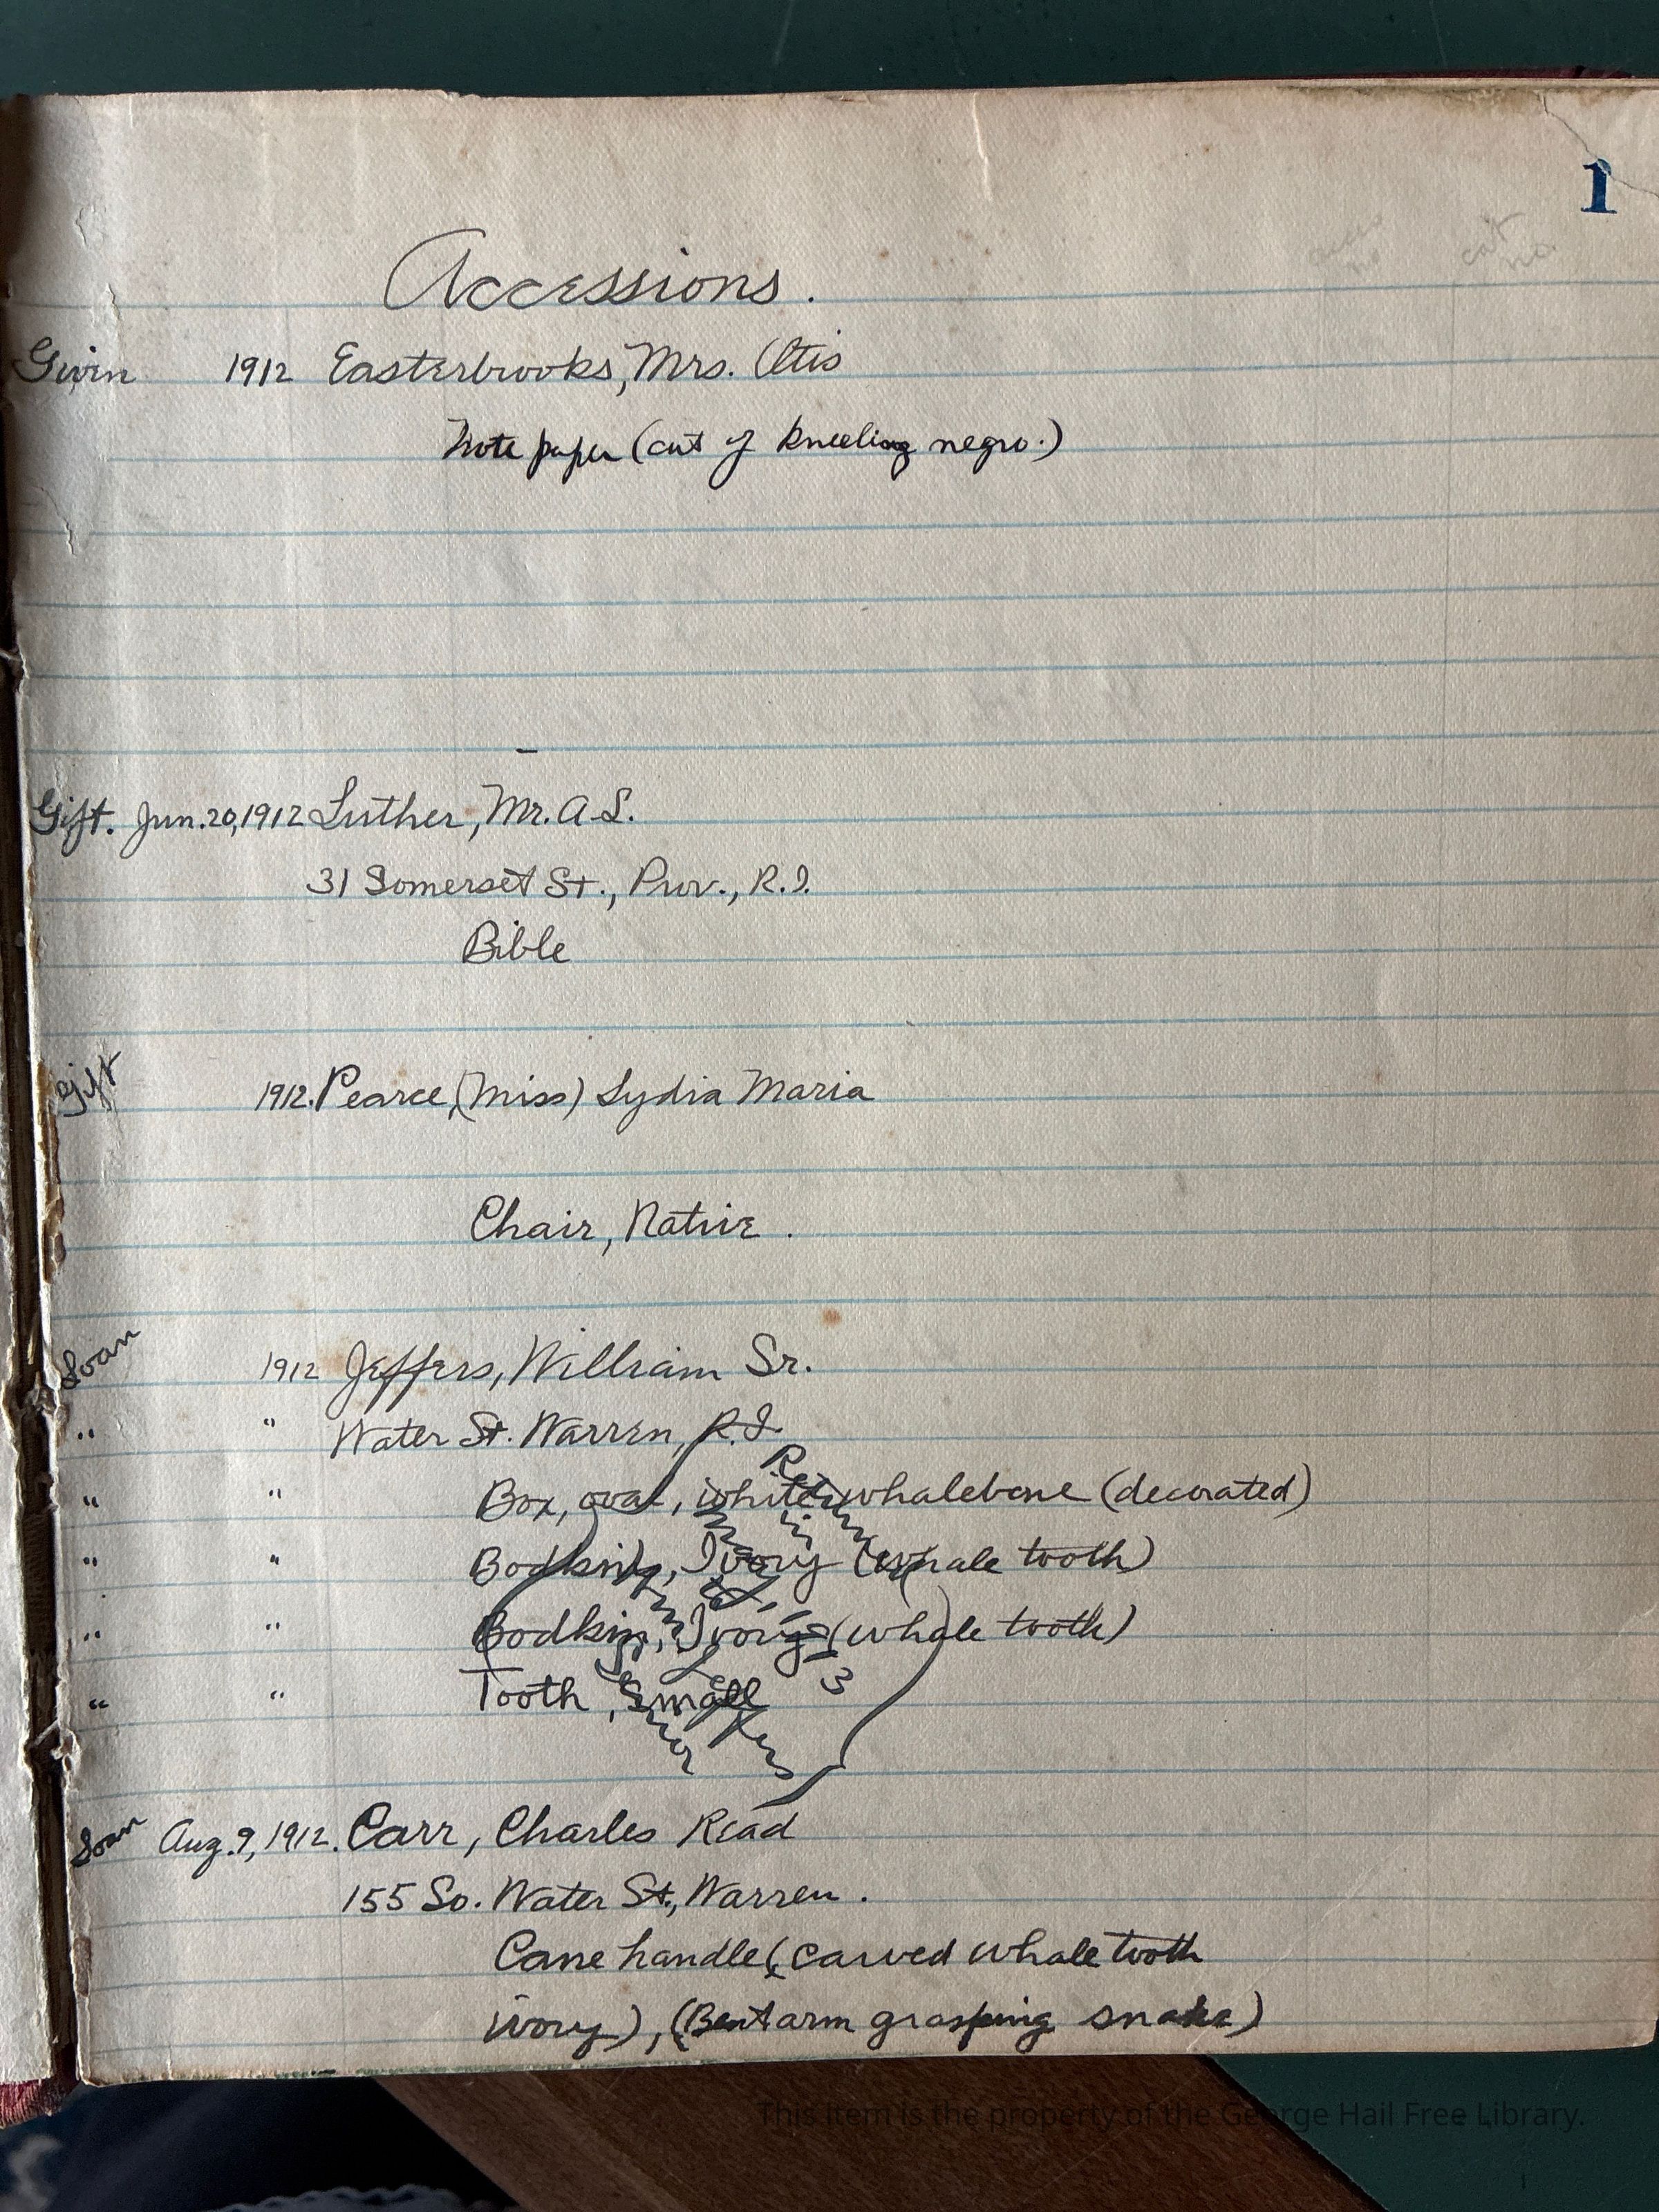 1
acc. no. cat. no.
Accessions.
Given 1912 Easterbrooks, Mrs. Otis
Note paper (cut of kneeling negro.)
Gift. Jun. 20, 1912 Luther, Mr. A. L.
31 Somerset St., Prov., R.I.
Bible
Gift 1912. Pearce, (Miss) Lydia Maria
Chair, Native.
Loan 1912 Jeffers, William Sr.
" " Water St. Warren, R.I.
" " Box, oval, white whalebone (decorated)
" " Bodkin, Ivory (whale tooth)
" " Bodkin, Ivory (whale tooth)
" " Tooth, Small
Loan Aug. 9, 1912. Carr, Charles Read
155 So. Water St., Warren.
Cane handle (carved whale tooth
ivory), (Bent arm grasping snake)
This item is the property of the George Hail Free Library.